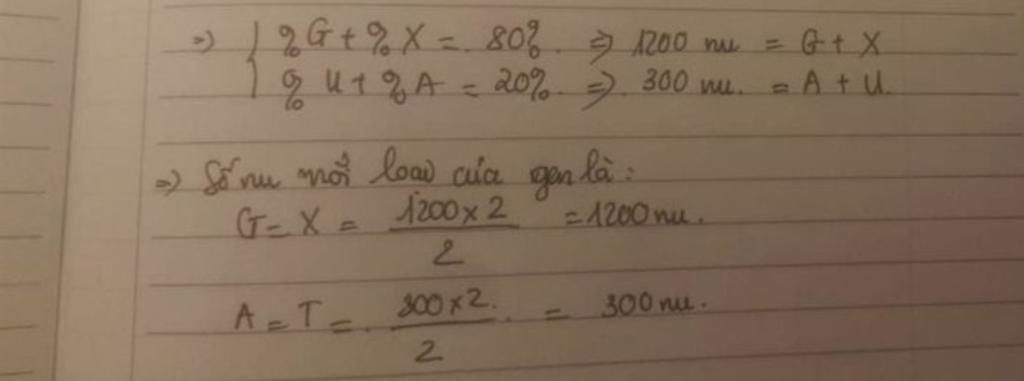 => { %G + %X = 80% => 1200 nu = G + X
%U + %A = 20% => 300 nu. = A + U.
=> Số nu mỗi loại của gen là:
G = X = \frac{1200 x 2}{2} = 1200 nu.
A = T = \frac{300 x 2}{2} = 300 nu.